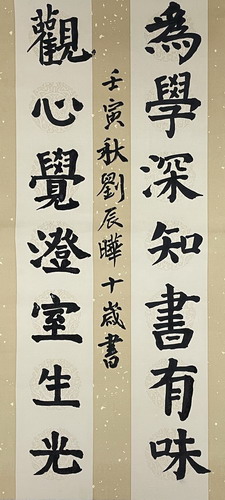 為學深知書有味
觀心覺澄室生光
壬寅秋劉辰曄十歲書